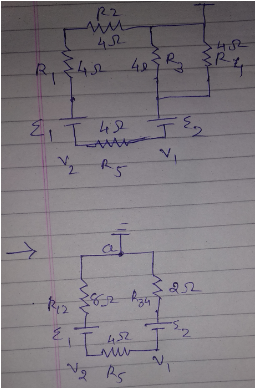 R2
4Ω
R1 4Ω 4Ω R3 4Ω R4
Ɛ1 4Ω Ɛ2
V2 R5 V1
→ a
R12 8Ω R34 2Ω
Ɛ1 4Ω Ɛ2
V2 R5 V1